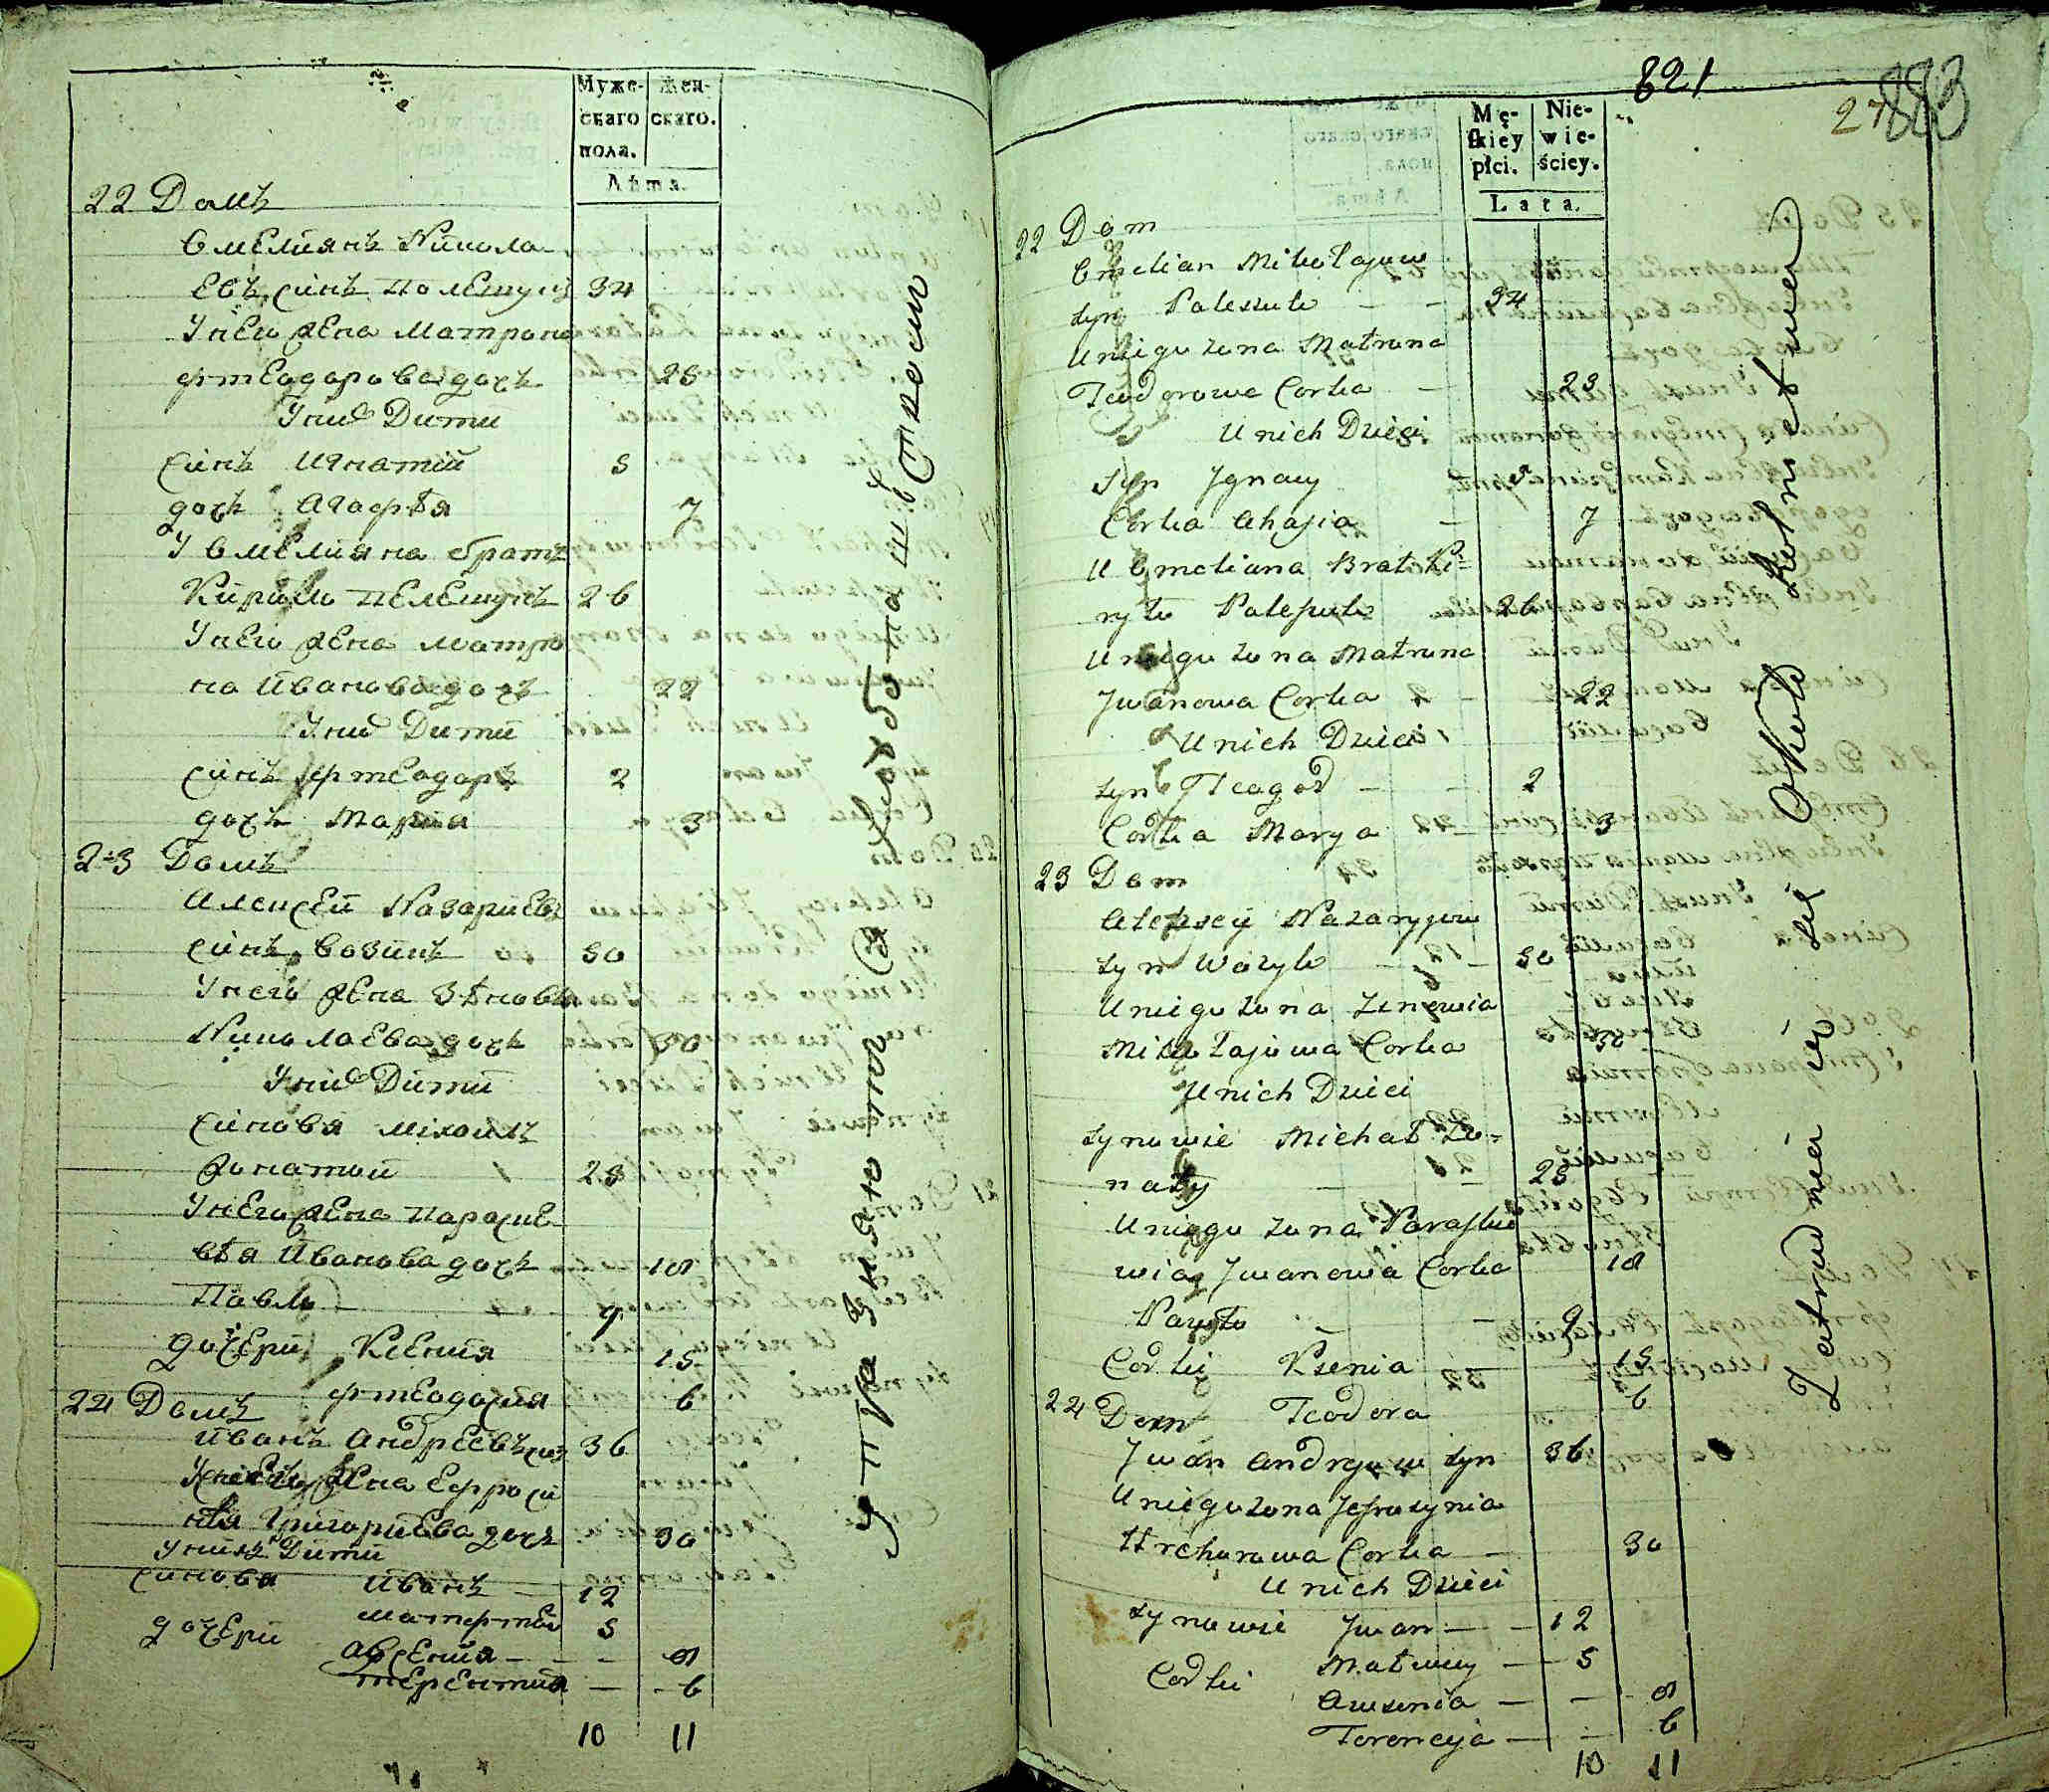 Муже-
скаго
пола.
Жен-
скаго.
Лѣта.
22 Домъ
Омелиянъ Никола
евъ синъ Полещукъ 34
У него жена Матрона
Фтеодорова дочъ 23
У них Дити
синъ Игнатій 5
дочъ Агафѣя 7
У Омелияна братъ
Кирило Пелещукъ 26
У него жена Матро
на Иванова дочъ 22
У них Дити
синъ Фтеодоръ 2
дочъ Мария 3
23 Домъ
Алексей Назариевъ
синъ Возикъ 50
У него жена Зѣновѣя
Николаева дочъ 50
У них Дити
синовя Міхаилъ
Донатой 23
У него жена Параске
вѣя Иванова дочъ 18
Павло 9
дочери Ксения 15
Фтеодосия 6
24 Домъ
Иванъ Андреевъ син 36
У него жена Ефроси
нѣя Григориева дочъ 30
У нихъ Дити
синовя Иванъ — 12
Матфтей 5
дочери Авсения — 8
Терентия — 6
10 11
Упражняются в хлѣбопашествѣ
821
27
883
Mę-
skiey
płci.
Nie-
wie-
ściey.
Lata.
22 Dom
Emelian Mikołajow
syn Paleszuk 34
U niego żona Matrona
Teodorowa Corka 23
U nich Dzieci
syn Jgnacy 5
Corka Ahafia 7
U Emeliana Brat Ki-
ryło Paleszuk 26
U niego żona Matrona
Jwanowa Corka 22
U nich Dzieci
syn Fteagod 2
Corka Marya 3
23 Dom
Alexsey Nazaryjow
syn Wozyk 50
U niego żona Zenowia
Mikołajowa Corka 50
U nich Dzieci
synowie Michał Do-
naty 23
U niego żona Paraskie
wia Jwanowa Corka 18
Pawło 9
Corki Ksenia 15
Teodora 6
24 Dom
Jwan Andryow syn 36
U niego żona Jefrosynia
Hrehorowa Corka — 30
U nich Dzieci
synowie Jwan — 12
Matwiey — 5
Corki Awsenia — 8
Terencyja — 6
10 11
Zatrudniaią się Około Rolnictwa